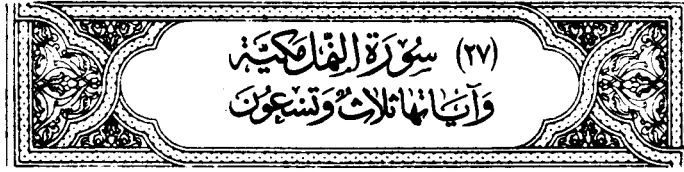 (٢٧) سُوْرَة النَّمْل مَكيَّة
وَآيَاتُهَا ثَلاثٌ وَتِسْعُونَ